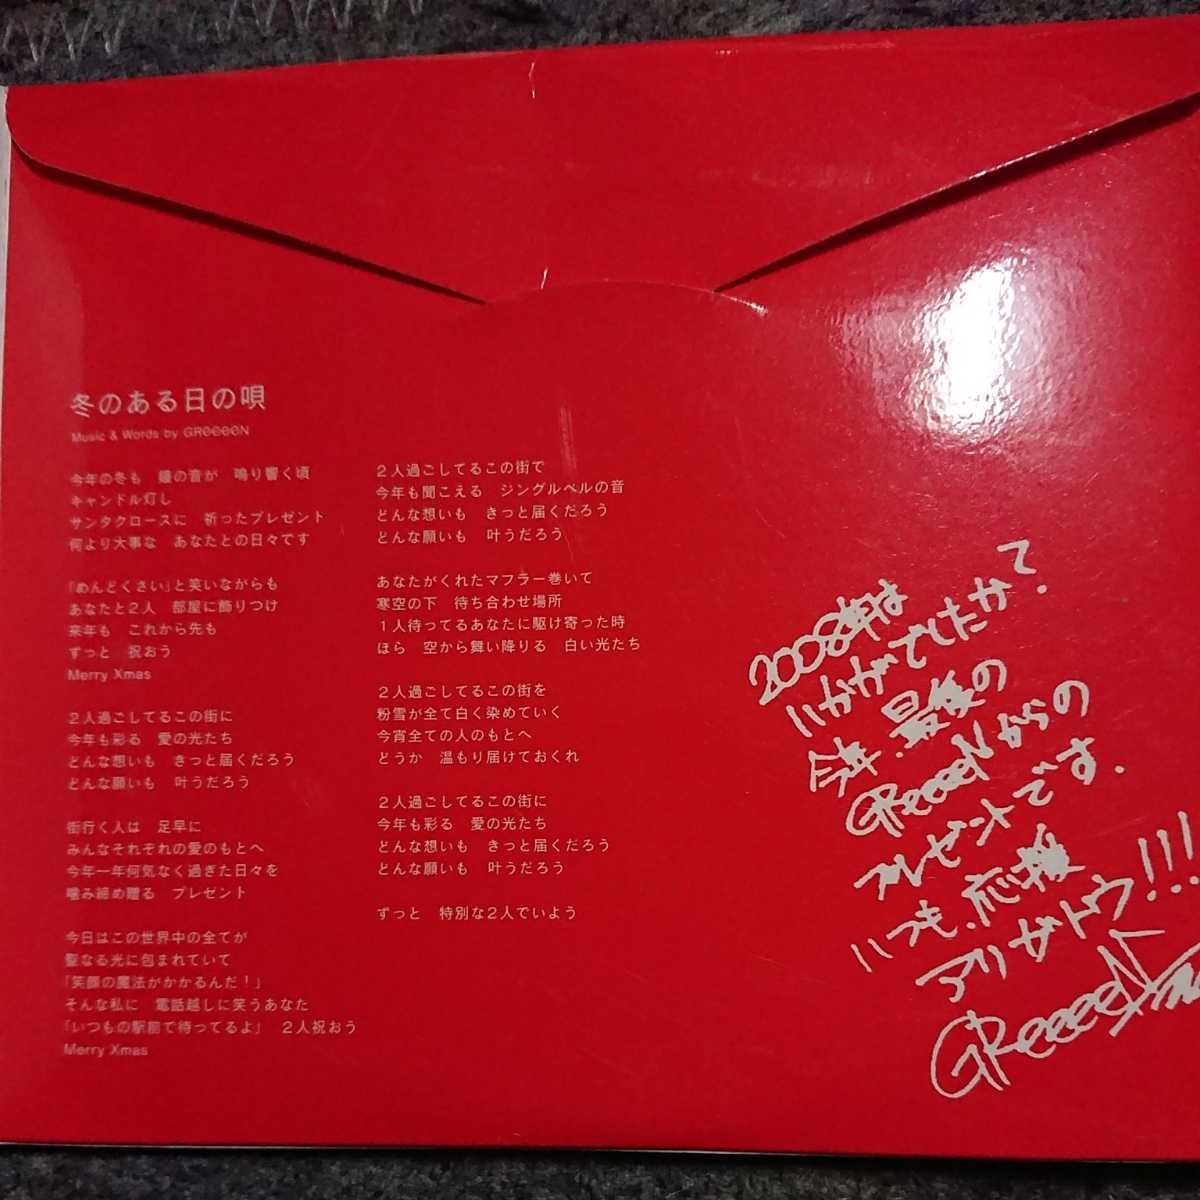 冬のある日の唄
Music & Words by GReeeeN
今年の冬も　鐘の音が　鳴り響く頃
キャンドル灯し
サンタクロースに　祈ったプレゼント
何より大事な　あなたとの日々です
「めんどくさい」と笑いながらも
あなたと2人　部屋に飾りつけ
来年も　これから先も
ずっと　祝おう
Merry Xmas
2人過ごしてるこの街に
今年も彩る　愛の光たち
どんな想いも　きっと届くだろう
どんな願いも　叶うだろう
街行く人は　足早に
みんなそれぞれの愛のもとへ
今年一年何気なく過ぎた日々を
噛み締め贈る　プレゼント
今日はこの世界中の全てが
聖なる光に包まれていて
「笑顔の魔法がかかるんだ！」
そんな私に　電話越しに笑うあなた
「いつもの駅前で待ってるよ」　2人祝おう
Merry Xmas
2人過ごしてるこの街で
今年も聞こえる　ジングルベルの音
どんな想いも　きっと届くだろう
どんな願いも　叶うだろう
あなたがくれたマフラー巻いて
寒空の下　待ち合わせ場所
1人待ってるあなたに駆け寄った時
ほら　空から舞い降りる　白い光たち
2人過ごしてるこの街を
粉雪が全て白く染めていく
今宵全ての人のもとへ
どうか　温もり届けておくれ
2人過ごしてるこの街に
今年も彩る　愛の光たち
どんな想いも　きっと届くだろう
どんな願いも　叶うだろう
ずっと　特別な2人でいよう
2008年は
いかがでしたかて?
今年.最後の
GReeeeNからの
プレゼントです.
いつも.応援
アリガトウ!!!
GReeeeN